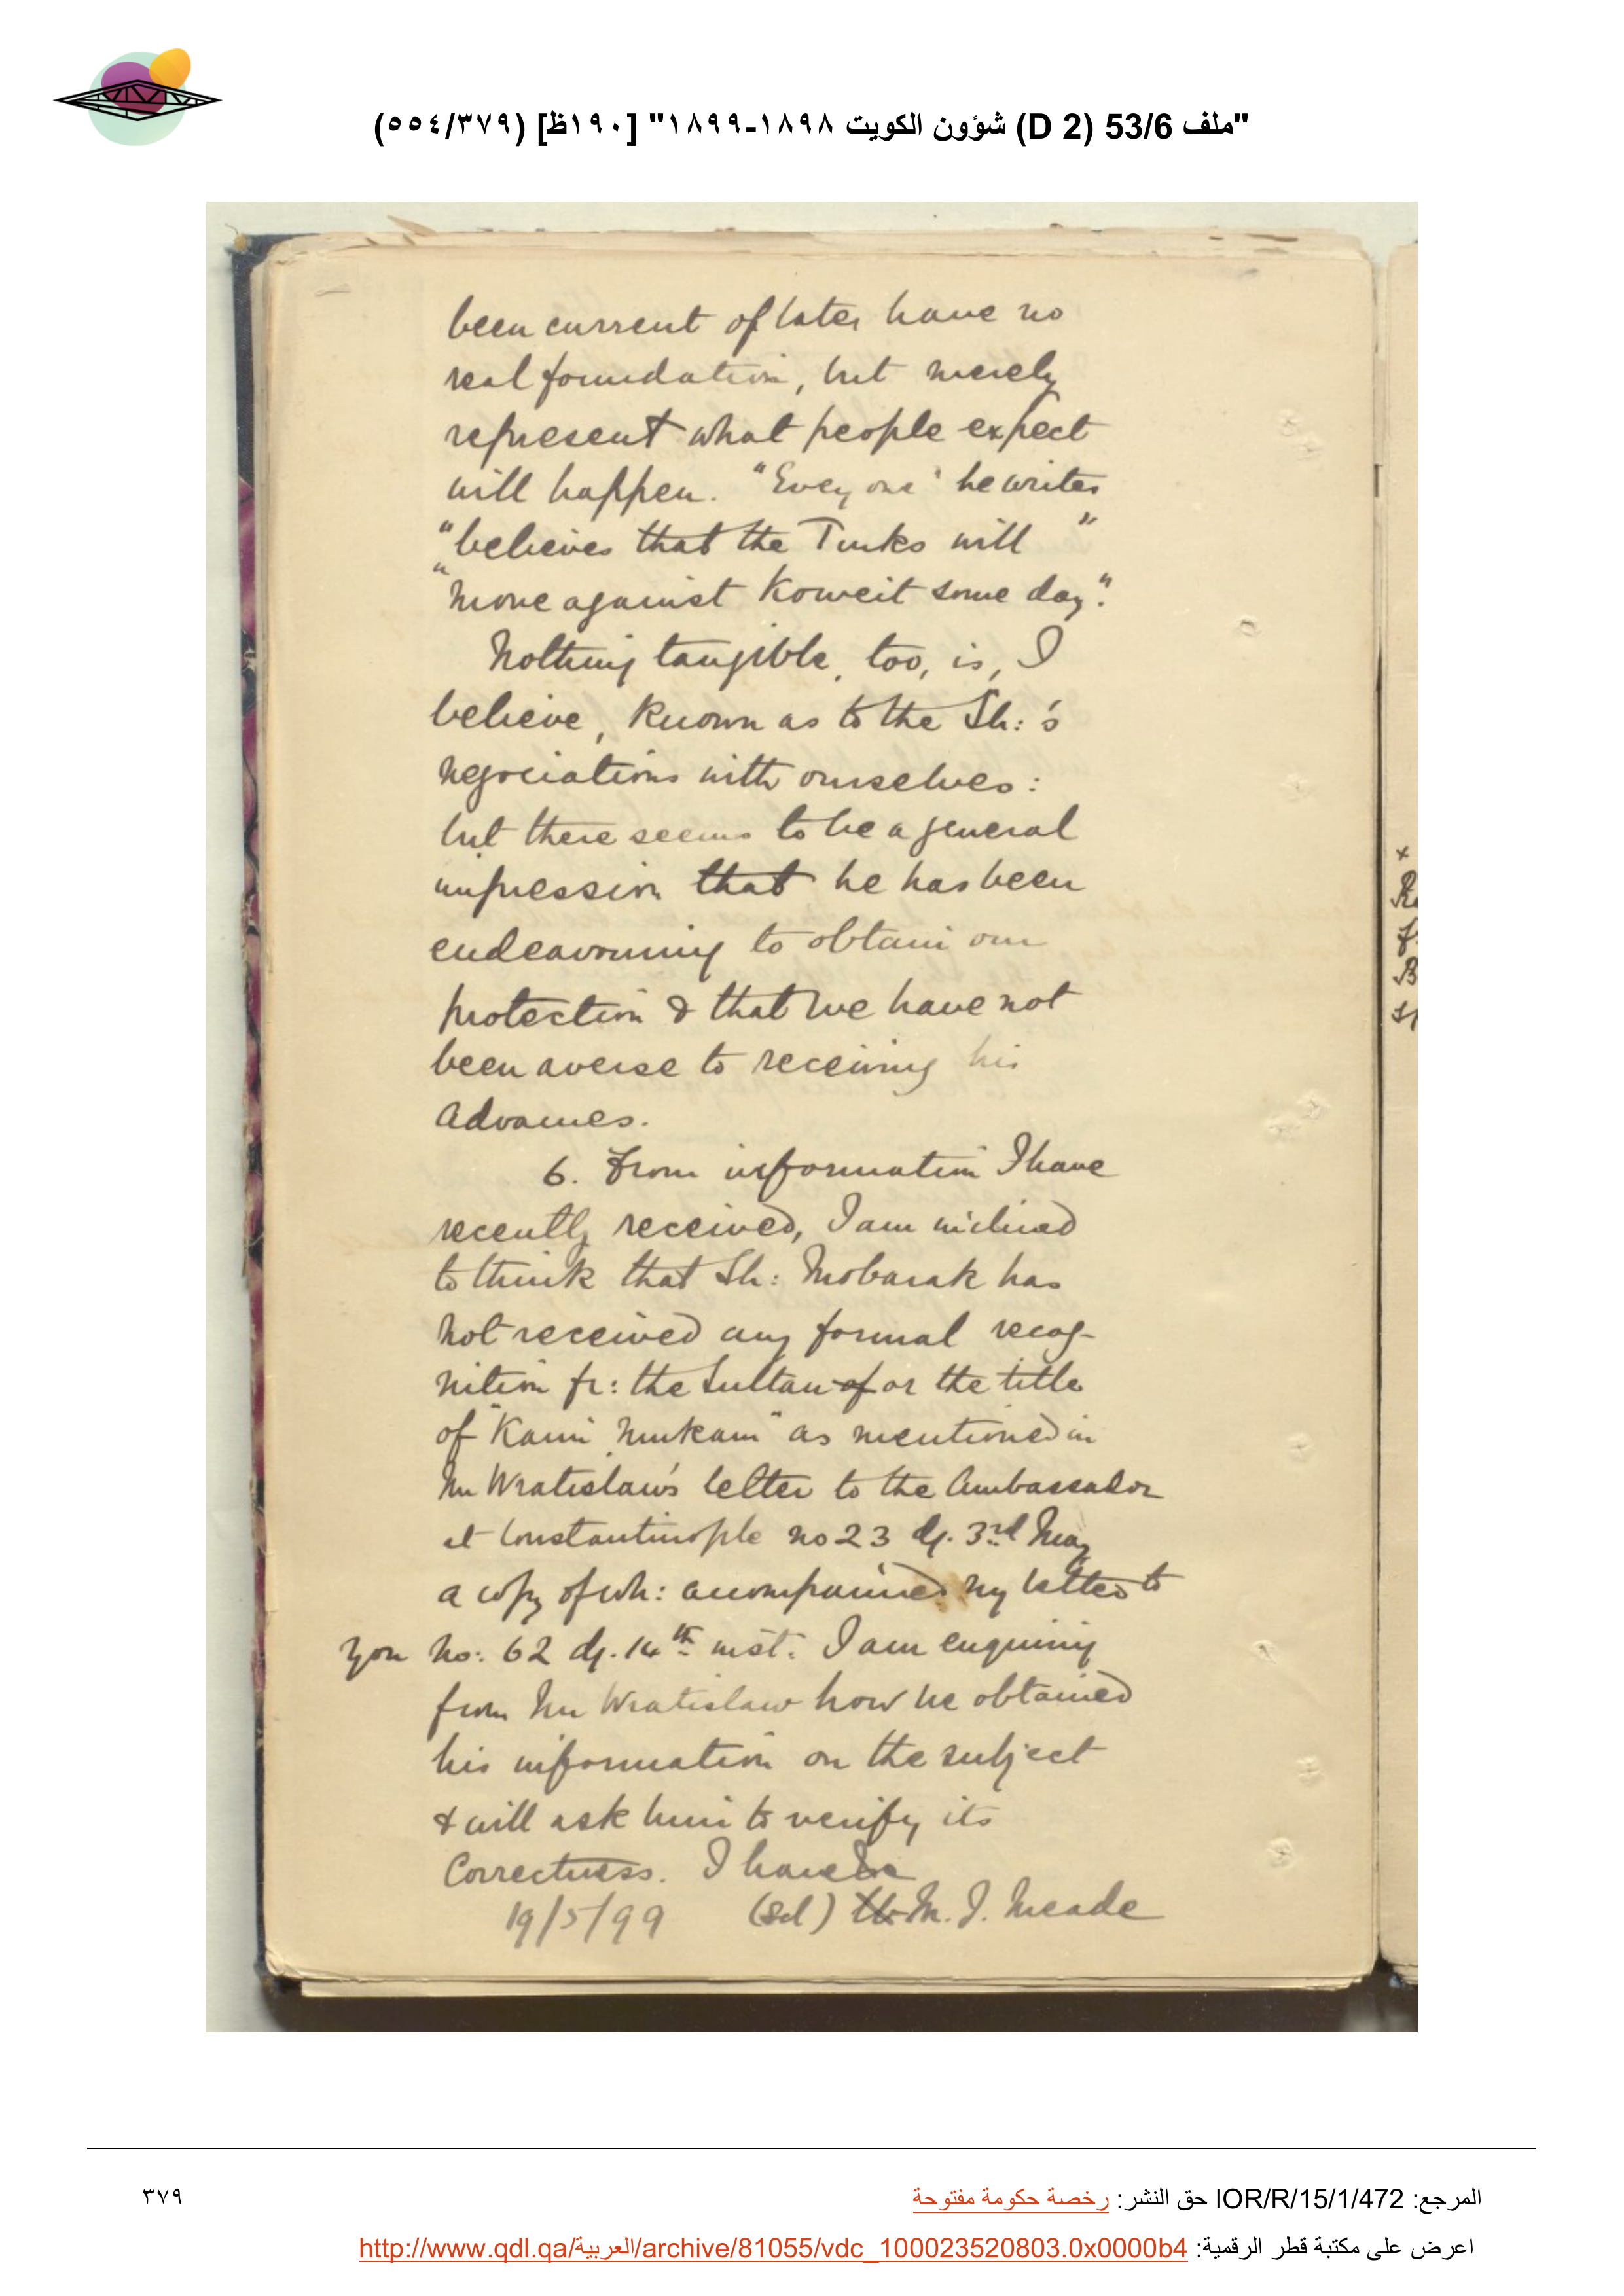 "ملف 53/6 (D 2) شؤون الكويت ١٨٩٨-١٨٩٩" [١٩٠ظ] (٥٥٤/٣٧٩)
been current of late, have no
real foundation, but merely
represent what people expect
will happen. "Every one" he writes
"believes that the Turks will"
"move against Koweit some day".
Nothing tangible, too, is, I
believe, known as to the Sh:'s
negociations with ourselves:
but there seems to be a general
impression that he has been
endeavouring to obtain our
protection & that we have not
been averse to receiving his
advances.
6. From information I have
recently received, I am inclined
to think that Sh: Mobarak has
not received any formal recog-
nition fr: the Sultan of or the title
of "Kaim Mukam" as mentioned in
Mr Wratislaw's letter to the Ambassador
at Constantinople no 23 d/. 3rd May
a copy of wh: accompanied my letter to
you no: 62 d/. 14th inst. I am enquiring
from Mr Wratislaw how he obtained
his information on the subject
& will ask him to verify its
correctness. I have &c
19/5/99 (Sd) M. J. Meade
٣٧٩
المرجع: IOR/R/15/1/472 حق النشر: رخصة حكومة مفتوحة
اعرض على مكتبة قطر الرقمية: http://www.qdl.qa/العربية/archive/81055/vdc_100023520803.0x0000b4